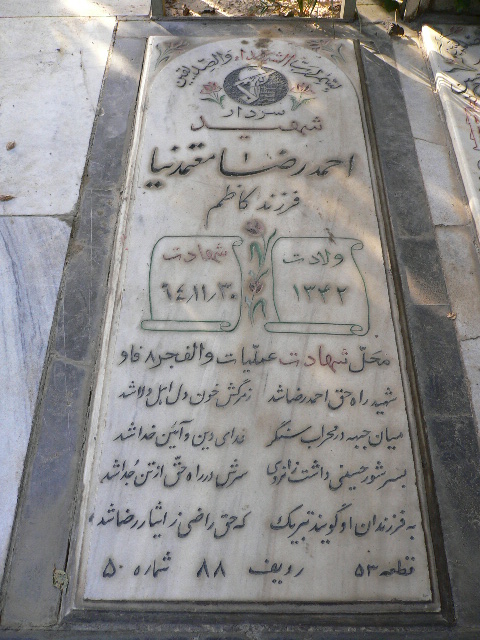 بنام رب الشهداء والصدیقین
سردار
شهید
احمدرضا معتمدنیا
فرزند کاظم
ولادت
۱۳۴۲
شهادت
۶۴/۱۱/۳۰
محل شهادت عملیات والفجر ۸ فاو
شهید راه حق احمدرضا شد ز مرگش خون دل اهل ولا شد
میان جبهه در محراب سنگر فدای دین و آئین خدا شد
بسر شور حسینی داشت زانروی سرش در راه حق از تن جدا شد
به فرزندان او گویند تبریک که حق راضی ز ایثار رضا شد
قطعه ۵۳ ردیف ۸۸ شماره ۵۰